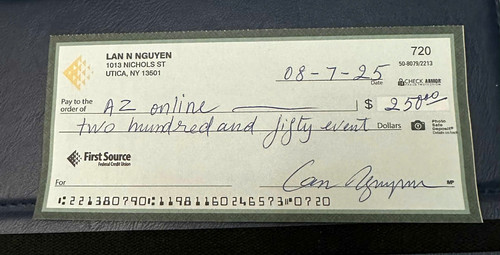 LAN N NGUYEN
1013 NICHOLS ST
UTICA, NY 13501
720
50-8079/2213
08-7-25
Date
CHECK ARMOR
Pay to the order of AZ online $ 250.00
two hundred and fifty event Dollars
Photo Safe Deposit®
Details on back
First Source
Federal Credit Union
For Lan Nguyen MP
⑆221380790⑆11981160246573⑈0720